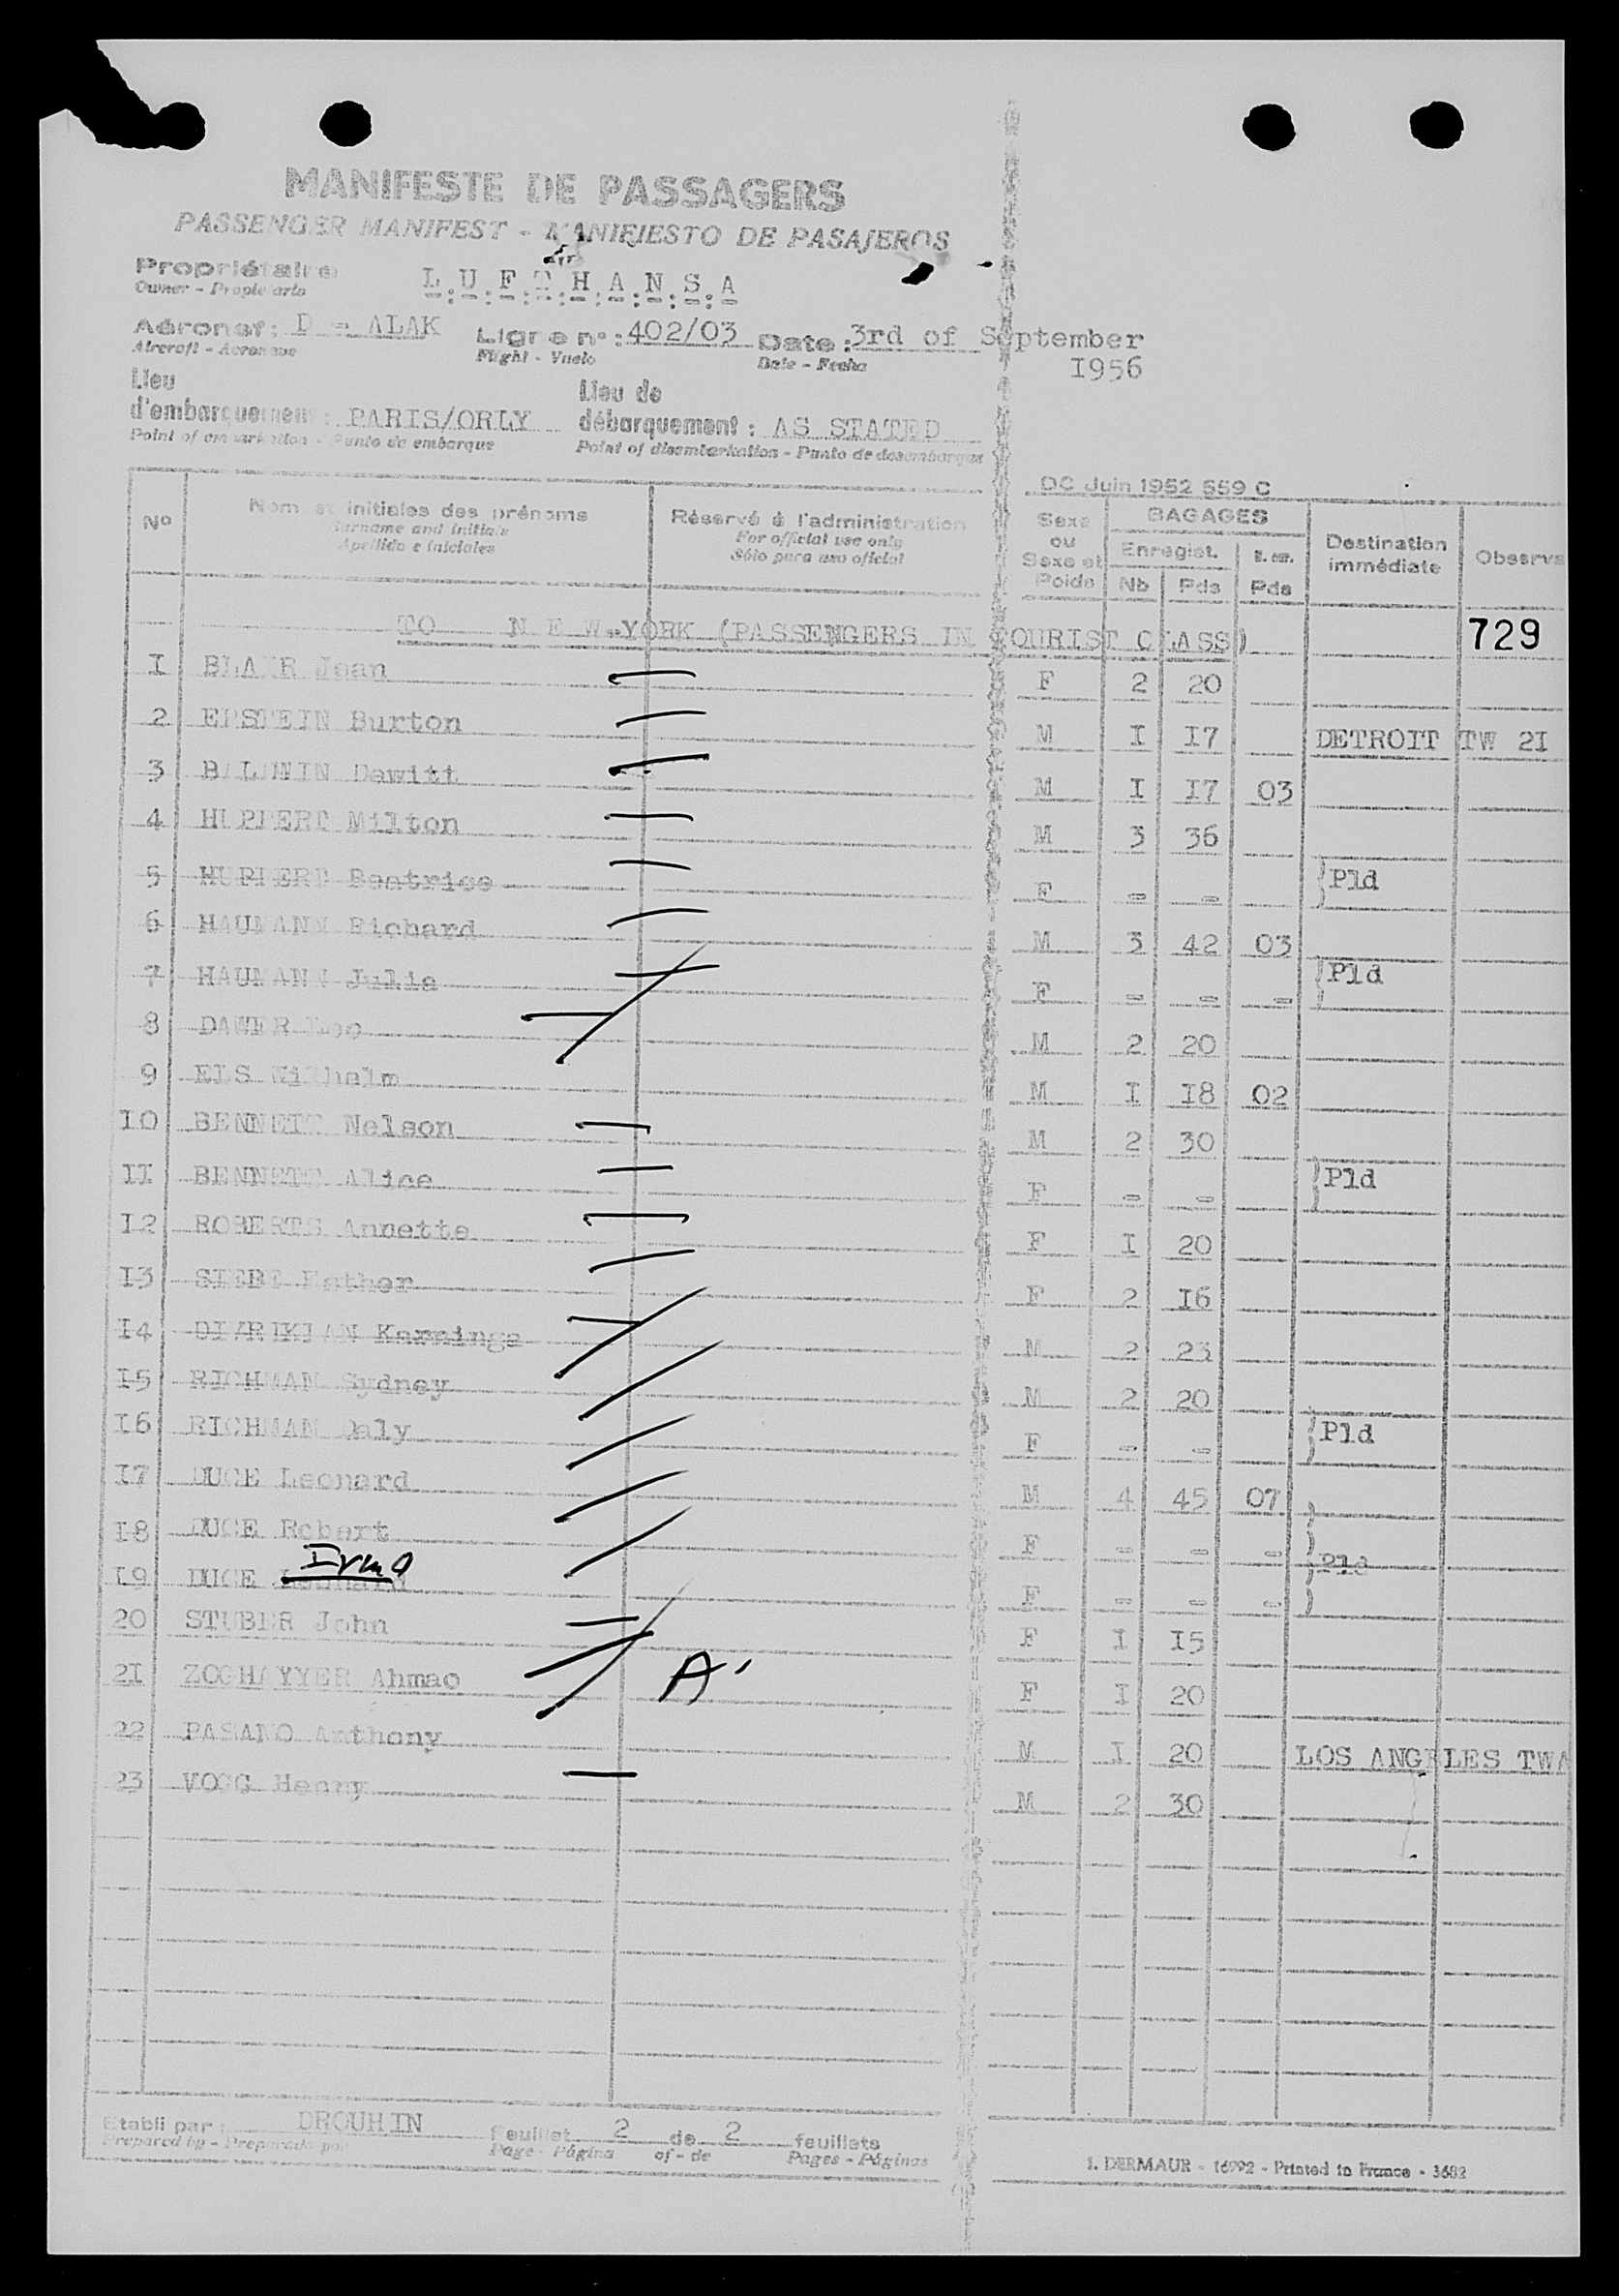 MANIFESTE DE PASSAGERS
PASSENGER MANIFEST - MANIFIESTO DE PASAJEROS
Propriétaire L.U.F.T.H.A.N.S.A
Owner - Propietario
Aéronef: D - ALAK Ligne n°: 402/03 Date: 3rd of September
Aircraft - Aeronave Flight - Vuelo Date - Fecha I956
Lieu d'embarquement: PARIS/ORLY Lieu de débarquement: AS STATED
Point of embarkation - Punto de embarque Point of disembarkation - Punto de desembarque
DC Juin 1952 559 C
N° Nom et initiales des prénoms Réservé à l'administration Sexe ou Sexe et Poids BAGAGES Enregist. Nb Pds Pds Destination immédiate Observa
Surname and initials For official use only
Apellido e iniciales Sólo para uso oficial
TO N E W-YORK (PASSENGERS IN TOURIST CLASS) 729
I BLAIR Jean F 2 20
2 EPSTEIN Burton M I I7 DETROIT TW 2I
3 BALDWIN Dewitt M I I7 03
4 HUPPERT Milton M 3 36
5 HUPPERT Beatrice F - - Pld
6 HAUMANN Richard M 3 42 03
7 HAUMANN Julia F - - - Pld
8 Leo M 2 20
9 ELS Wilhelm M I I8 02
IO BENNETT Nelson M 2 30
II BENNETT Alice F - - Pld
I2 ROBERTS Annette F I 20
I3 Esther F 2 I6
I4 M 2 23
I5 RICHMAN Sydney M 2 20
I6 RICHMAN F - - Pld
I7 DUCE Leonard M 4 45 07
I8 DUCE Robert F - - - Pld
I9 DUCE Irma F - - -
20 STUBER John F I I5
2I ZOGHAYYER Ahmao A' F I 20
22 Anthony M I 20 LOS ANGELES TWA
23 VOGG Henry M 2 30
Etabli par: DROUHIN Feuillet 2 de 2 feuillets
Prepared by - Preparado por Page - Página of - de Pages - Páginas
DERMAUR - 16992 - Printed in France - 3682